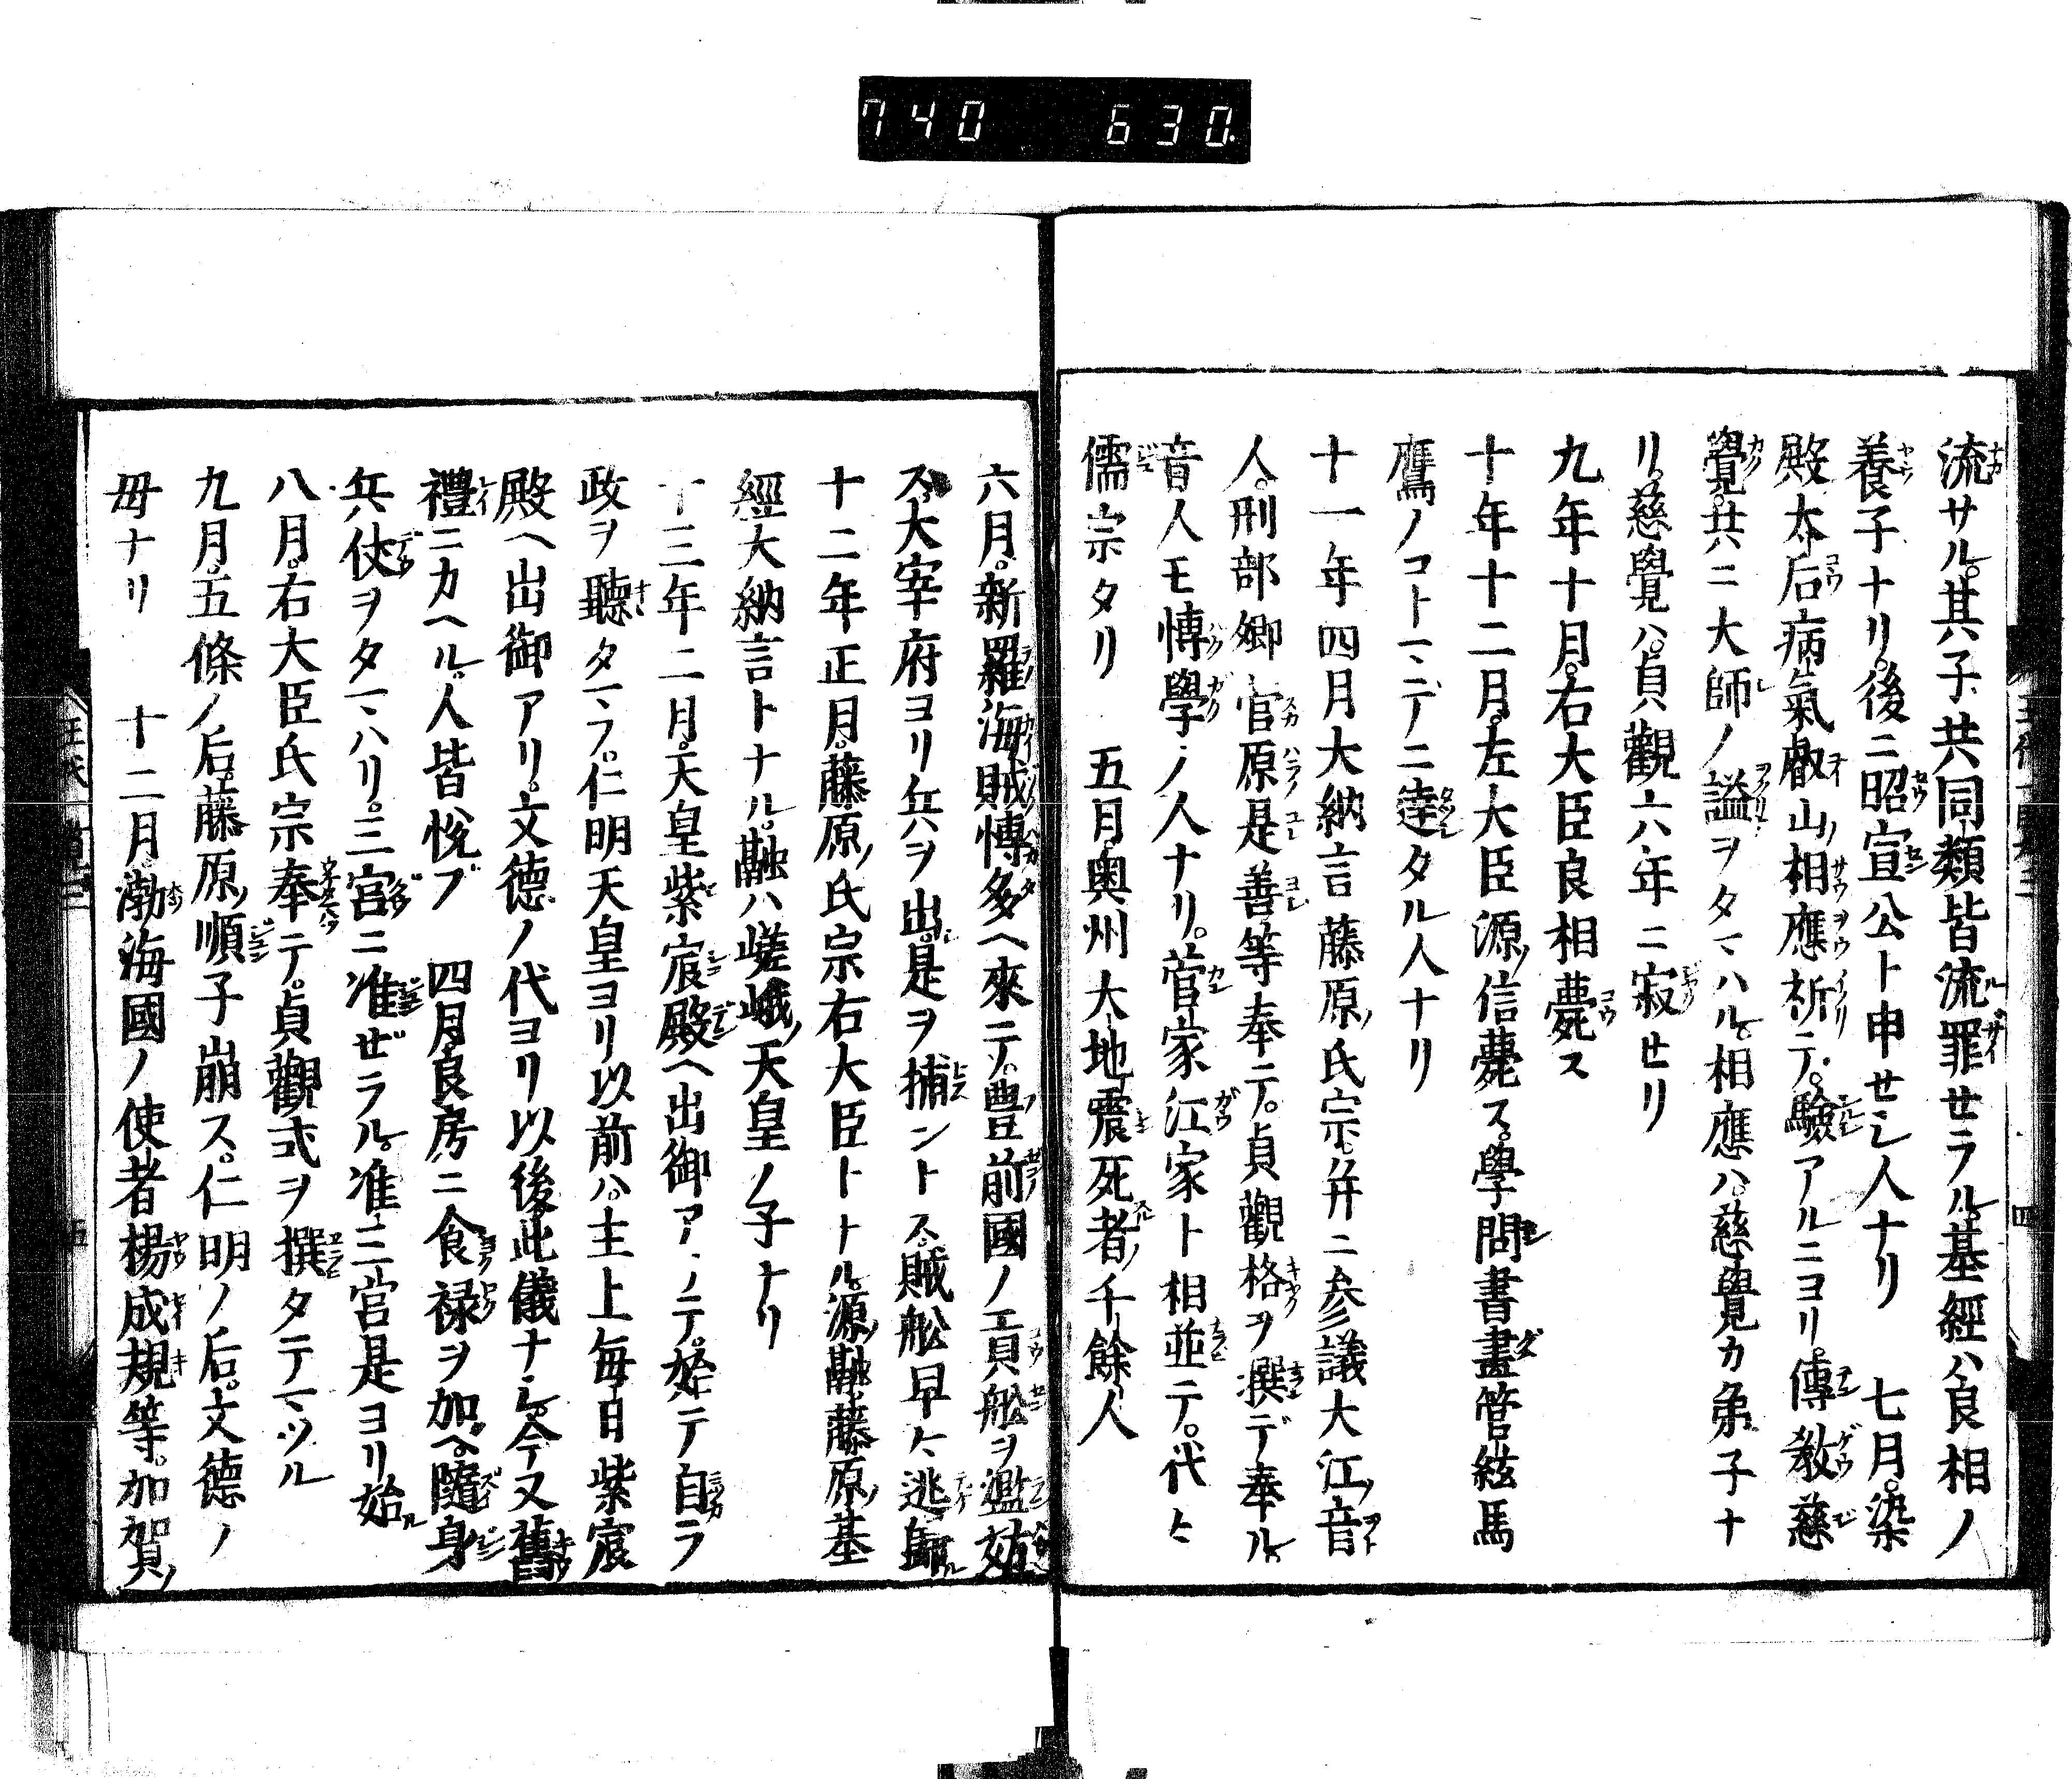 740 630.
流サル。其子共同類皆流罪セラル。基經ハ良相ノ
養子ナリ。後ニ昭宣公ト申セシ人ナリ 七月。染
殿太后病氣。叡山ノ相應祈テ。驗アルニヨリ。傳教慈
覺。共ニ大師ノ謚ヲタマハル。相應ハ。慈覺カ弟子ナ
リ。慈覺ハ。貞觀六年ニ寂セリ
九年十月。右大臣良相薨ス
十年十二月。左大臣源ノ信薨ス。學問書畫管絃馬
鷹ノコトマデノニ達タル人ナリ
十一年四月大納言藤原ノ氏宗。并ニ參議大江ノ音
人。刑部卿官原是善等奉テ。貞觀格ヲ撰デ奉ル。
音人モ博學ノ人ナリ。菅家江家ト相並テ。代々
儒宗タリ 五月奧州大地震死者千餘人
六月。新羅海賊博多ヘ來テ。豊前國ノ貢船ヲ濫妨
ス。大宰府ヨリ兵ヲ出。是ヲ捕ントス。賊船早ク逃歸
十二年正月。藤原ノ氏宗右大臣トナル。源ノ融藤原ノ基
經大納言トナル。融ハ嵯峨ノ天皇ノ子ナリ
十三年二月。天皇紫宸殿ヘ出御アリテ。始テ自ラ
政ヲ聽タマフ。仁明天皇ヨリ以前ハ。主上毎日紫宸
殿ヘ出御アリ。文德ノ代ヨリ以後此儀ナシ。今又舊
禮ニカヘル。人皆悅ブ 四月。良房ニ食祿ヲ加ヘ。隨身
兵仗ヲタマハリ。三宮ニ准ゼラル。准三宮是ヨリ始
八月。右大臣氏宗奉テ。貞觀式ヲ撰タテマツル
九月。五條ノ后。藤原ノ順子崩ス。仁明ノ后。文德ノ
母ナリ 十二月。渤海國ノ使者楊成規等。加賀ノ